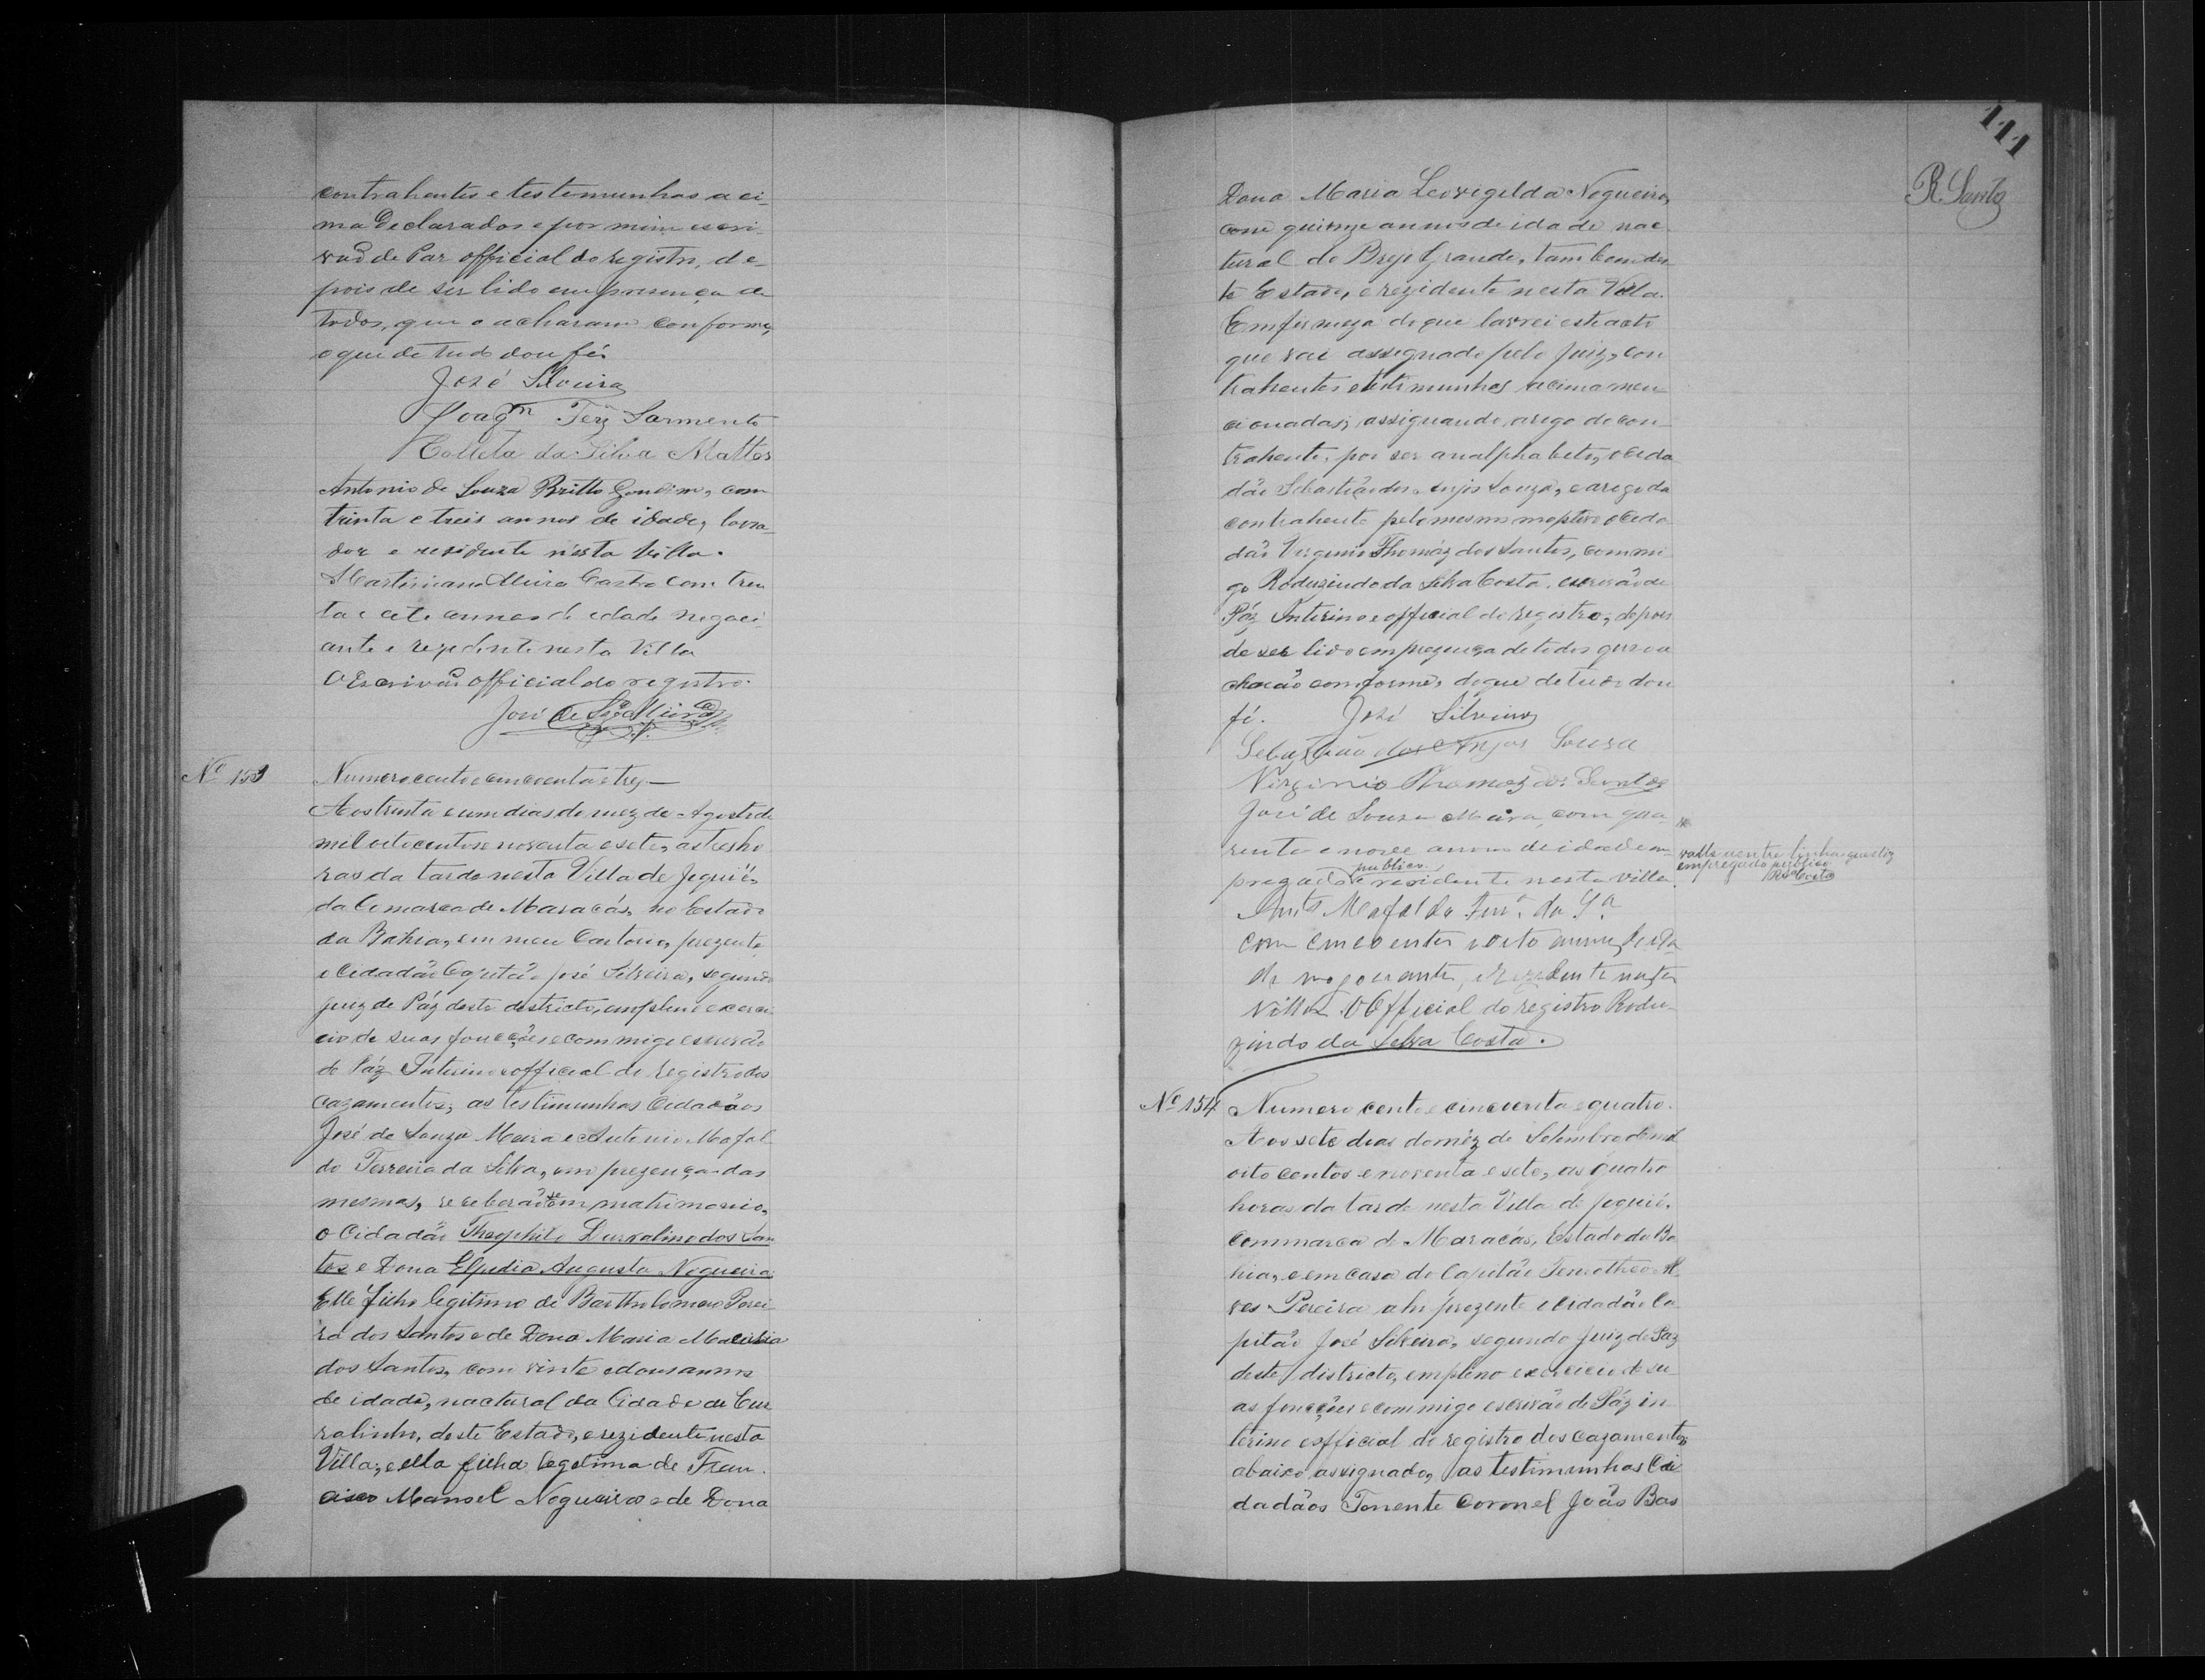 contrahentes e testemunhas aci-
ma declarados e por mim escri-
vão de Paz official do registro, de-
pois de ser lido em presença de
todos, que o acharam conforme,
o que de tudo dou fé.
José Silveira
Joaqm Ferz Sarmento
Colleta da Silva Mattos
Antonio de Souza Britto Gondim, com
trinta e treis annos de idade, lavra-
dor e residente n'esta Villa.
Martiniano Meira Castro com trin
ta e cete annos de edade negoci-
ante e rezedente nesta Villa
O Escrivão official do registro.
José de Sza Meira
No 153
Numero cento e cincoenta e trez—
Aos trinta e um dias do mez de Agosto de
mil oito centos e noventa e sete, as tres ho
ras da tarde nesta Villa de Jequié,
da Comarca de Maracás, no Estado
da Bahia, em meu Cartorio, prezente
o Cidadão Capitão José Silveira, segundo
Juiz de Páz deste destricto, em pleno exerci-
cio de suas foncções e commigo escrivão
de Páz Interino e official do registro dos
cazamentos, as testimunhas Cidadãos
José de Souza Meira e Antonio Mafal
do Ferreira da Silva, em prezença das
mesmas, receberão se em matrimonio,
o Cidadão Theophilo Durvalino dos San
tos e Dona Elpidia Augusta Nogueira
Elle filho legitimo de Bartholomeu Perei
ra dos Santos e de Dona Maria
dos Santos, com vinte e dous annos
de idade, nactural da Cidade de Cur
ralinho, deste Estado, e rezidente nesta
Villa, e ella filha legitima de Fran-
cisco Manoel Nogueira e de Dona
111
R. Santos
Dona Maria Leovegilda Nogueira,
com quinze annos de idade nac
tural do Brejo Grande, tambem des
te Estado, e rezidente nesta Villa.
Em firmeza do que lavrei este acto
que vai assignado pelo Juiz, con
trahentes e testimunhas acima men
cionadas, assignando, arogo do con-
trahente, por ser analphabeto, o cida
dão Sebastião dos Anjos Souza, e arogo da
contrahente pelo mesmo moptivo o cida
dão Virginio Thomáz dos Santos, commi
go Roduzindo da Silva Costa, escrivão de
Páz Interino e official do registro, depois
de ser lido em prezença de todos que o a
charão conforme, do que de tudo dou
fé. José Silveira
Sebastião dos Anjos Souza
Virginio Thomaz dos Santos
José de Souza Meira, com qua-
renta e nove annos de idade em-
publico
pregado e residente nesta villa.
valle a entre linha que diz
empregado publico
RSaCosta
Anto Mafaldo Ferra da Sa
com cincoenta e oito annos de ida
de negociante, e rezidente nesta
Villa. O Official do registro Rodu-
zindo da Silva Costa.
No 154
Numero cento e cincoenta e quatro.
Aos sete dias do mêz de Setembro de mil
oito centos e noventa e sete, as quatro
horas da tarde nesta Villa de Jequié,
commarca de Maracás, Estado da Ba
hia, e em casa do Capitão Temotheo Al
ves Pereira ahi prezente o cidadão Ca
pitão José Silveira, segundo Juiz de Paz
deste districto, em pleno exercicio de su
as foncções e commigo escrivão de Páz in
terino e official do registro dos cazamentos
abaixo assignado, as testimunhas Ci
dadãos Tenente Coronel João Bas